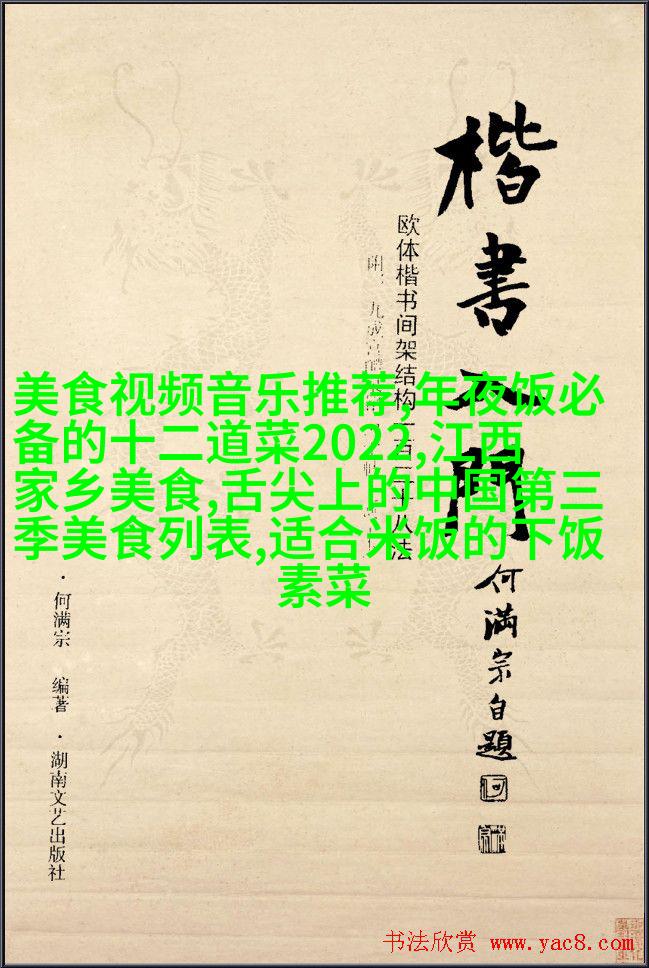 楷書入門
何满宗自題
欧体楷书间架结构一百二十八法
美食视频音乐推荐,年夜饭必
备的十二道菜2022,江西
家乡美食,舌尖上的中国第三
季美食列表,适合米饭的下饭
素菜
·何满宗 编著·湖南文艺出版社
书法欣赏 www.yac8.com